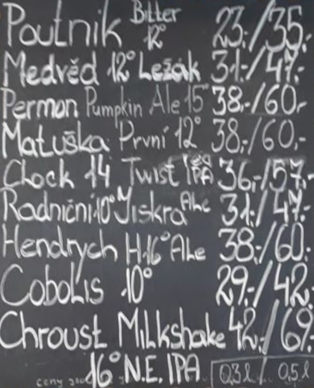 Poutnik Bitter 12° 23,-/35,-
Medvěd 12° Ležák 31,-/47,-
Permon Pumpkin Ale 15° 38,-/60,-
Matuška První 12° 38,-/60,-
Clock 14 Twist IPA 36,-/57,-
Radniční 10° Jiskra Ale 31,-/47,-
Hendrych H16° Ale 38,-/60,-
Cobolis 10° 29,-/42,-
Chroust Milkshake 42,-/69,-
16° N.E. IPA 0,3 l 0,5 l
ceny